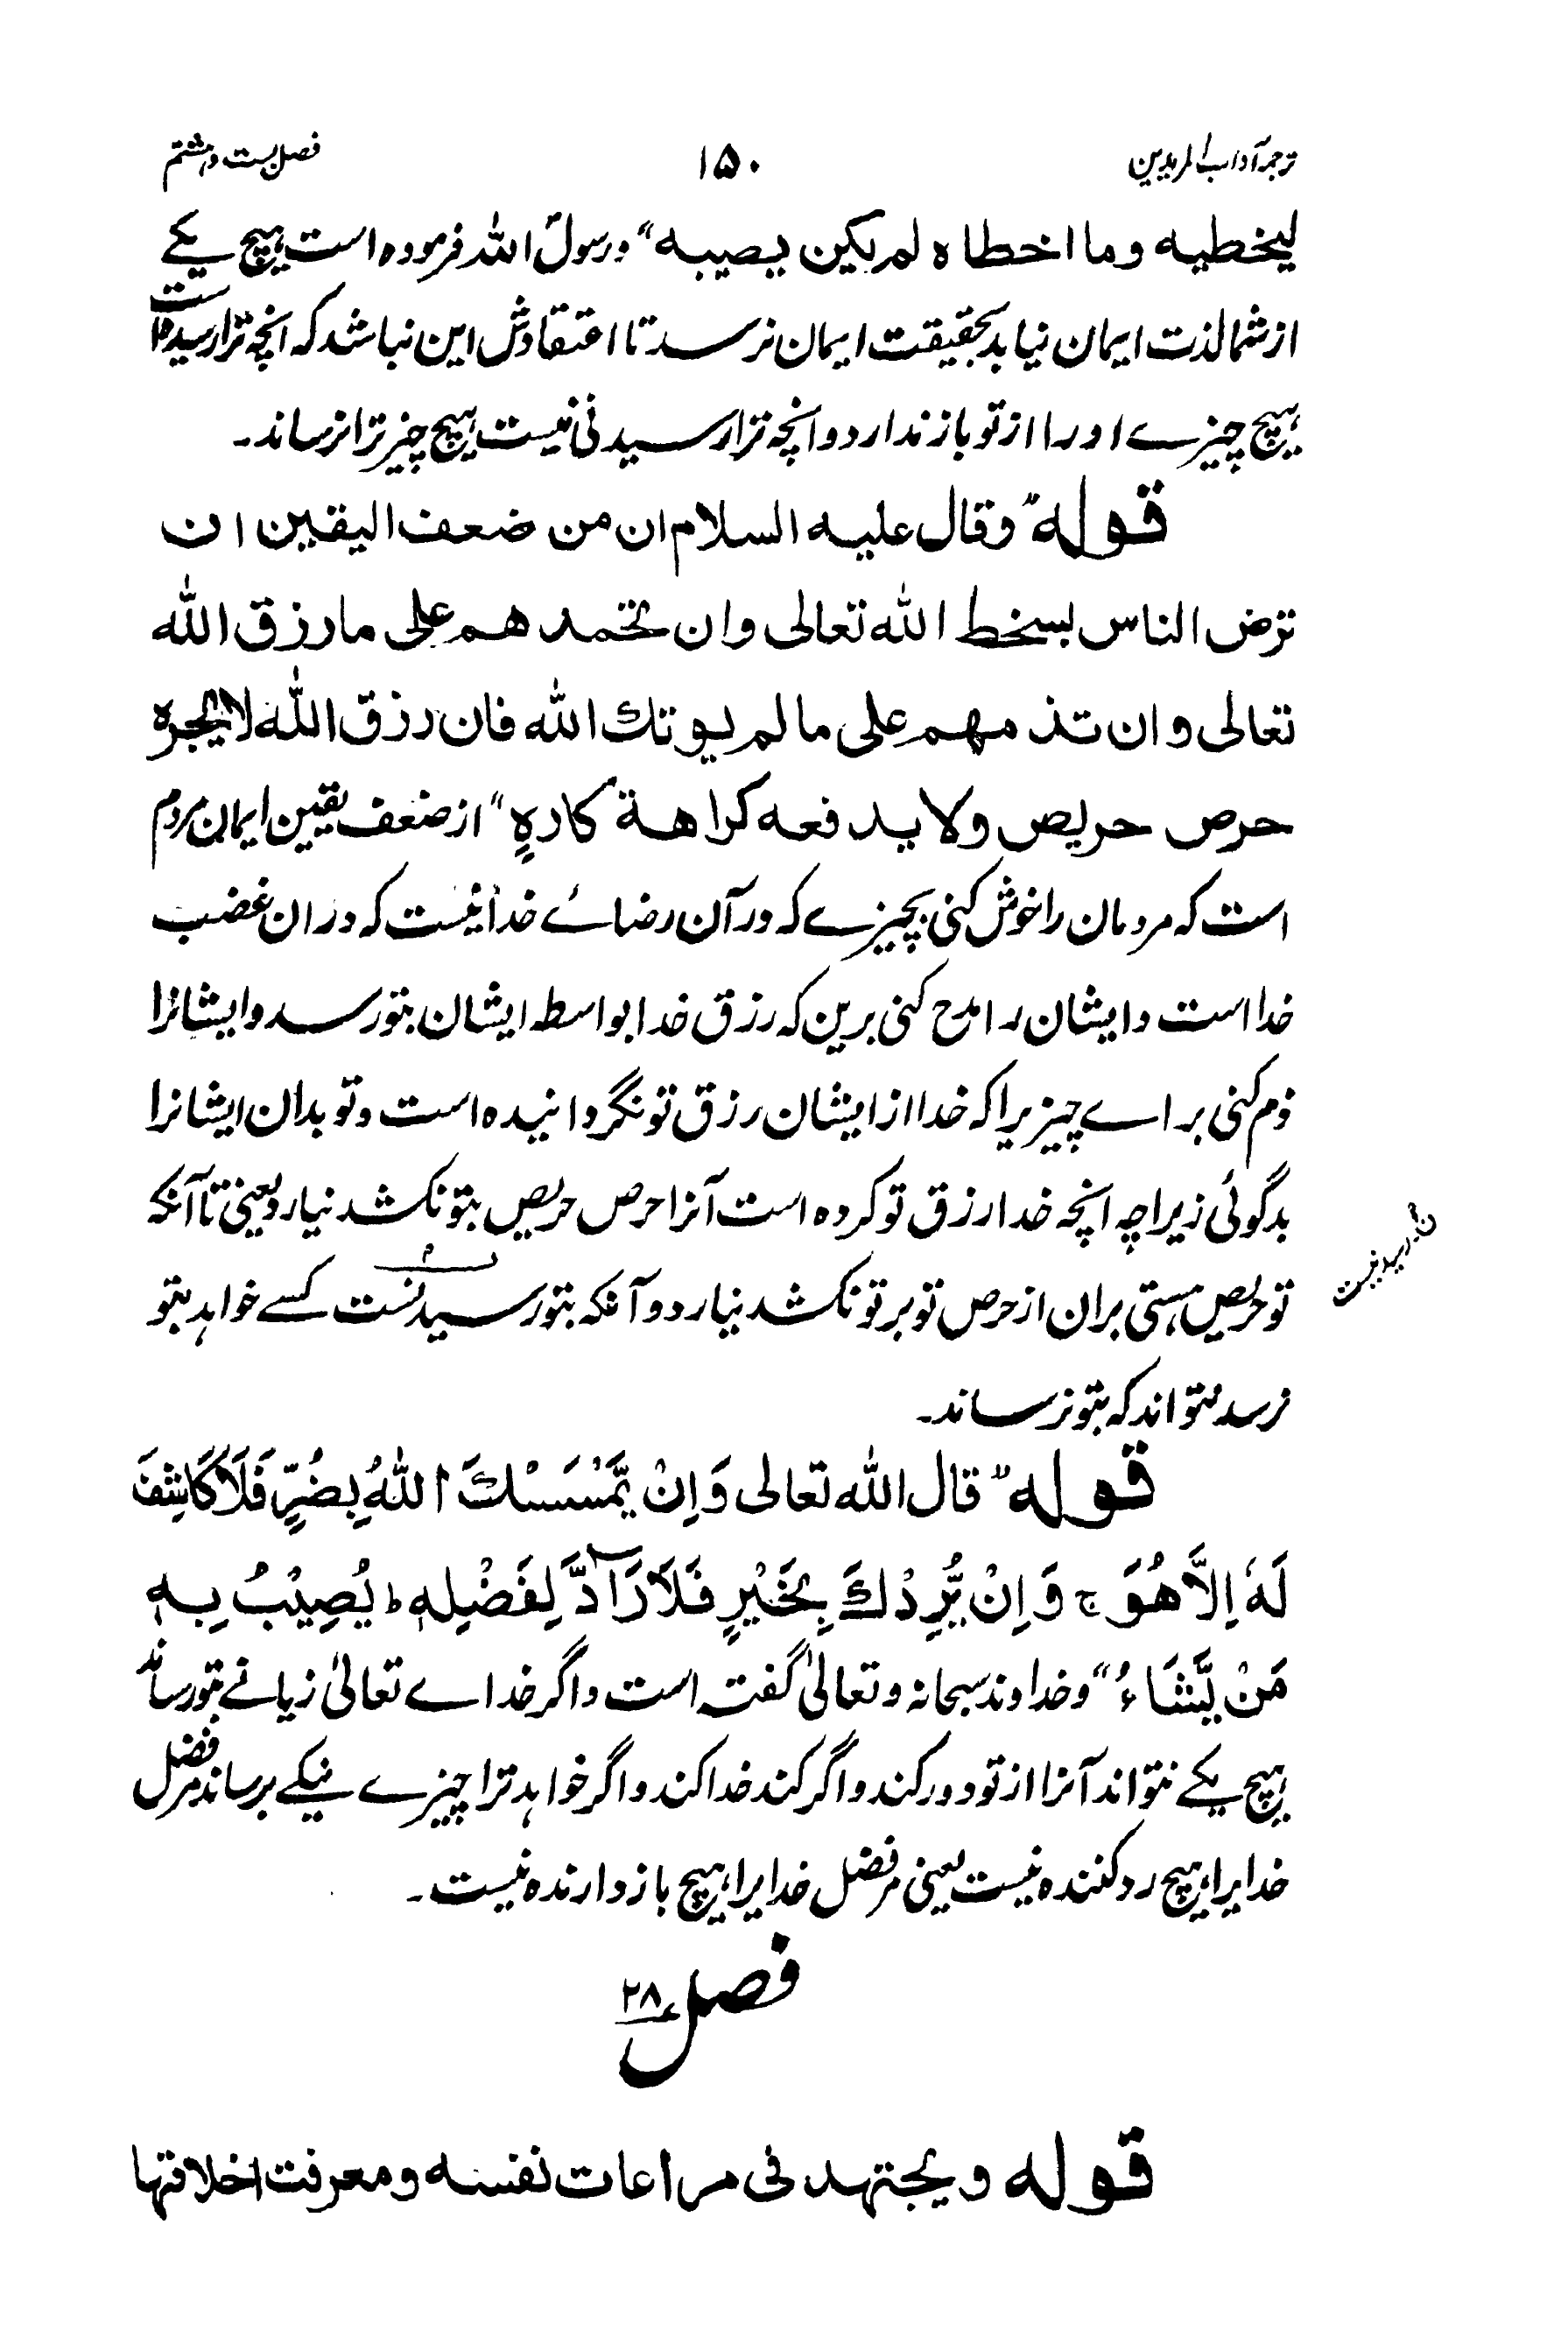 ترجمہ آداب المریدین ۱۵۰ فصل بست و ہشتم
لیخطیه وما اخطاه لم یکن یصیبه" و رسولؐ الله فرموده است ہیچ یکے
از شما لذت ایمان نیابد بحقیقت ایمان نرسد تا اعتقادش این نباشد کہ انچه ترا رسیده است
ہیچ چیزے او را از تو باز ندارد و انچہ ترا رسیدنی نیست ہیچ چیز ترا نرساند۔
قوله" وقال علیه السلام ان من ضعف الیقین ان
ترض الناس بسخط الله تعالی وان تحمد هم علی ما رزق الله
تعالی وان تذ مهم علی ما لم یوتك الله فان رزق الله لا یجره
حرص حریص ولا یدفعه کراهة کارهٍ" از ضعف یقین ایمان مردم
است کہ مردمان را خوش کنی بچیزے کہ در آن رضائے خدا نیست کہ دران غضب
خدا است و ایشان را مدح کنی برین کہ رزق خدا بواسطہ ایشان بتو رسد و ایشانرا
ذم کنی براے چیزیرا کہ خدا از ایشان رزق تو نگردانیده است و تو بدان ایشانرا
بدگوئی زیراچہ انچہ خدا رزق تو کرده است آنرا حرص حریص بتو نکشد نیارد یعنی تا آنکہ
تو حریص ہستی بران از حرص تو بر تو نکشد نیارد و آنکہ بتو رسید نست کسے خواہد بتو
ن۔ رسید نیست
نرسد نتواند کہ بتو نرساند۔
قوله" قال الله تعالی وَاِنْ یَّمْسَسْكَ اللهُ بِضُرٍّ فَلَا کَاشِفَ
لَهٗ اِلَّا هُوَ ج وَاِنْ یُّرِدْكَ بِخَیْرٍ فَلَا رَآدَّ لِفَضْلِهٖ ط یُصِیْبُ بِهٖ
مَنْ یَّشَاءُ" و خداوند سبحانہ و تعالیٰ گفت است و اگر خداے تعالیٰ زیانے بتو رساند
ہیچ یکے نتواند آنرا از تو دور کند و اگر کند خدا کند و اگر خواہد ترا چیزے نیکے برساند مر فضل
خدایرا ہیچ رد کننده نیست یعنی مر فضل خدایرا ہیچ باز دارنده نیست۔
فصل ۲۸
قوله ویجتهد فی مراعات نفسه ومعرفت اخلاقها